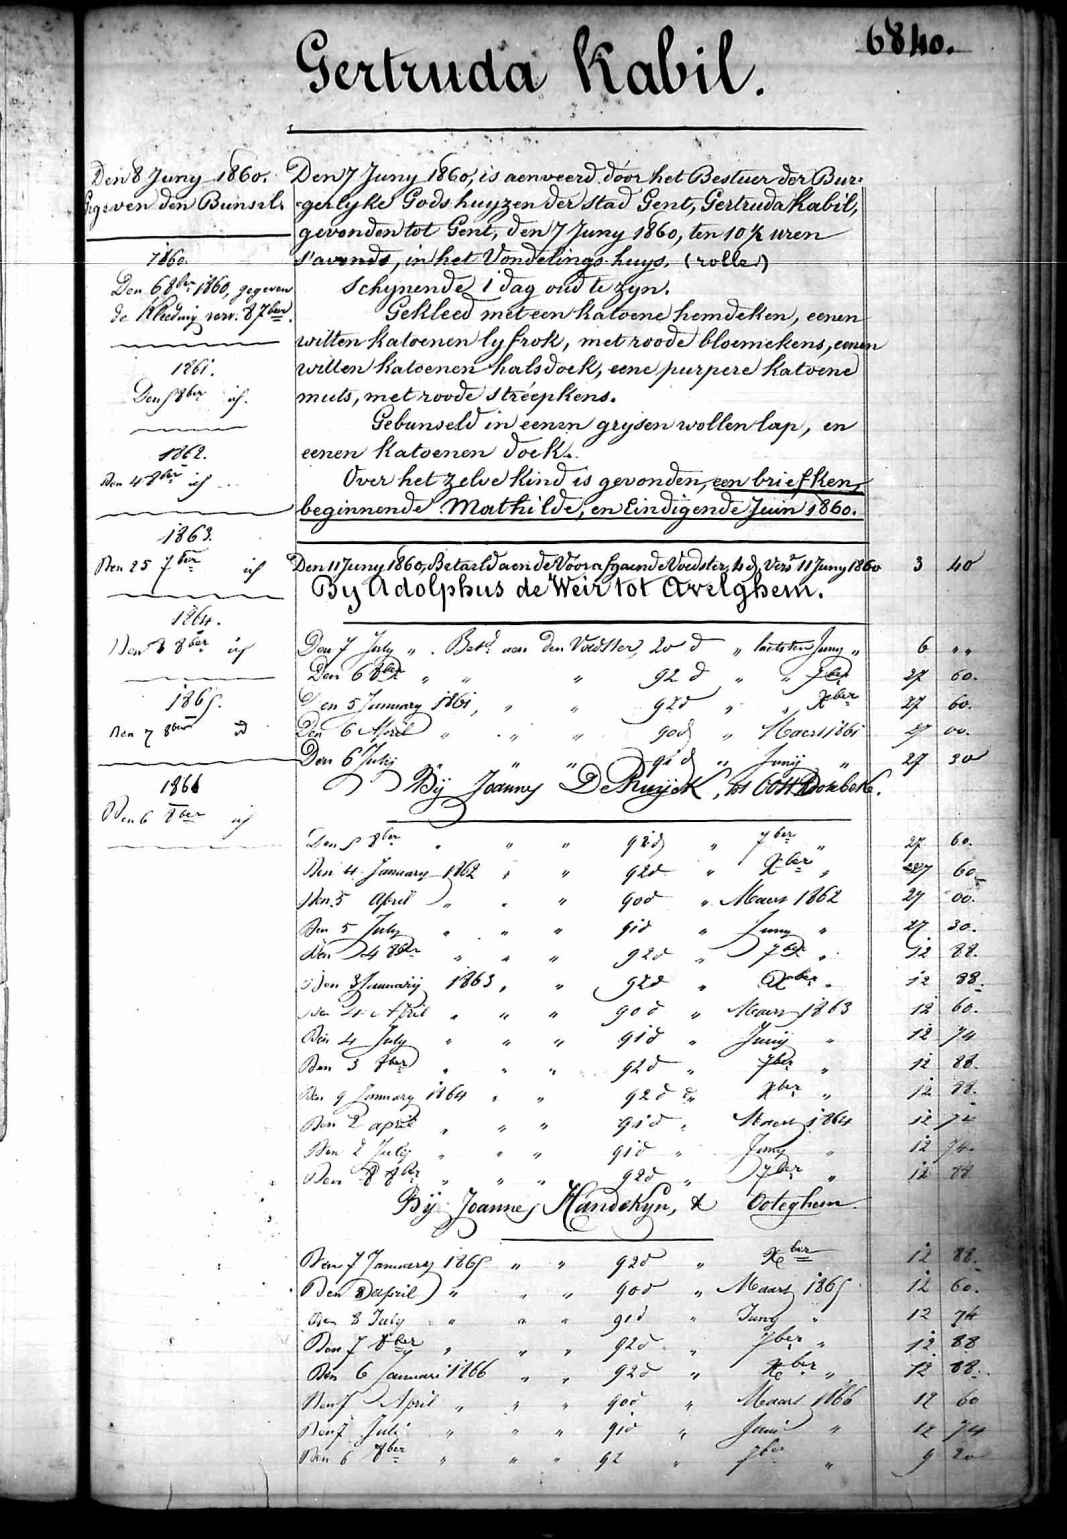 6840.
Gertruda Kabil.
Den 8 Juny 1860.
Gegeven den Bunsel.
1860.
Den 6 8ber 1860, gegeven
de Kleeding verv. 8 7ber.
1861.
Den 5 8ber id.
1862.
Den 4 8ber id
1863.
Den 25 7ber id
1864.
Den 8 8ber id
1865.
Den 7 8ber id
1866
Den 6 8ber id
Den 7 Juny 1860, is aenveerd door het Bestuer der Bur-
gerlyke Godshuyzen der stad Gent, Gertruda Kabil,
gevonden tot Gent, den 7 Juny 1860, ten 10 ½ uren
s'avonds, in het Vondelings-huys. (rolle)
Schynende 1 dag oud te zyn.
Gekleed met een katoene hemdeken, eenen
witten katoenen lyfrok, met roode bloemekens, eenen
witten katoenen halsdoek, eene purpere katoene
muts, met roode stréepkens.
Gebunseld in eenen grysen wollen lap, en
eenen katoenen doek.
Over het zelve kind is gevonden, een briefken,
beginnende Mathilde, en Eindigende Juin 1860.
Den 11 Juny 1860, Betaeld aen de Voorafgaende Voedster, 4 d, Vers 11 Juny 1860 3 40
By Adolphus de Weir tot Avelghem.
Den 7 July " . Betd aen den Voedster, 20 d " laetsten Juny " 6 ""
Den 6 8ber " " " 92 d " " 7ber 27 60.
Den 5 January 1861, " " 92d " " Xber 27 60.
Den 6 April " " " 90d " Maert 1861 27 00.
Den 6 July " " " 91d " Junij " 27 30
Bij Joannes De Ruijck, tot Oost Roosbeke.
Den 5 8ber " " " 92d " 7ber " 27 60.
Den 4 January 1862 " " 92d " Xber " 27 60
Den 5 April " " " 90d " Maert 1862 27 00.
Den 5 July " " " 91d " Juny " 27 30.
Den 4 8ber " " " 92d " 7ber " 12 88.
Den 3 Januarij 1863 " " 92d " Xber " 12 88.
Den 4 April " " " 90d " Maert 1863 12 60.
Den 4 July " " " 91d " Junij " 12 74
Den 3 8ber " " " 92d " 7ber " 12 88.
Den 9 January 1864 " " 92d " Xber " 12 88.
Den 2 april " " " 91d " Maert 1864 12 74
Den 2 July " " " 91d " Juny " 12 74.
Den 8 8ber " " " 92d " 7ber " 12 88
Bij Joannes Handekyn, te Ooteghem.
Den 7 January 1865 " " 92d " Xber 12 88.
Den 8 april " " " 90d " Maart 1865 12 60.
Den 8 July " " " 91d " Juny " 12 74
Den 7 8ber " " " 92d " 7ber " 12 88
Den 6 Januari 1866 " " 92d " Xber " 12 88.
Den 7 April " " " 90d " Maart 1866 12 60
Den 7 Juli " " " 91d " Juni " 12 74
Den 6 8ber " " " 92 " 7ber " 9 20